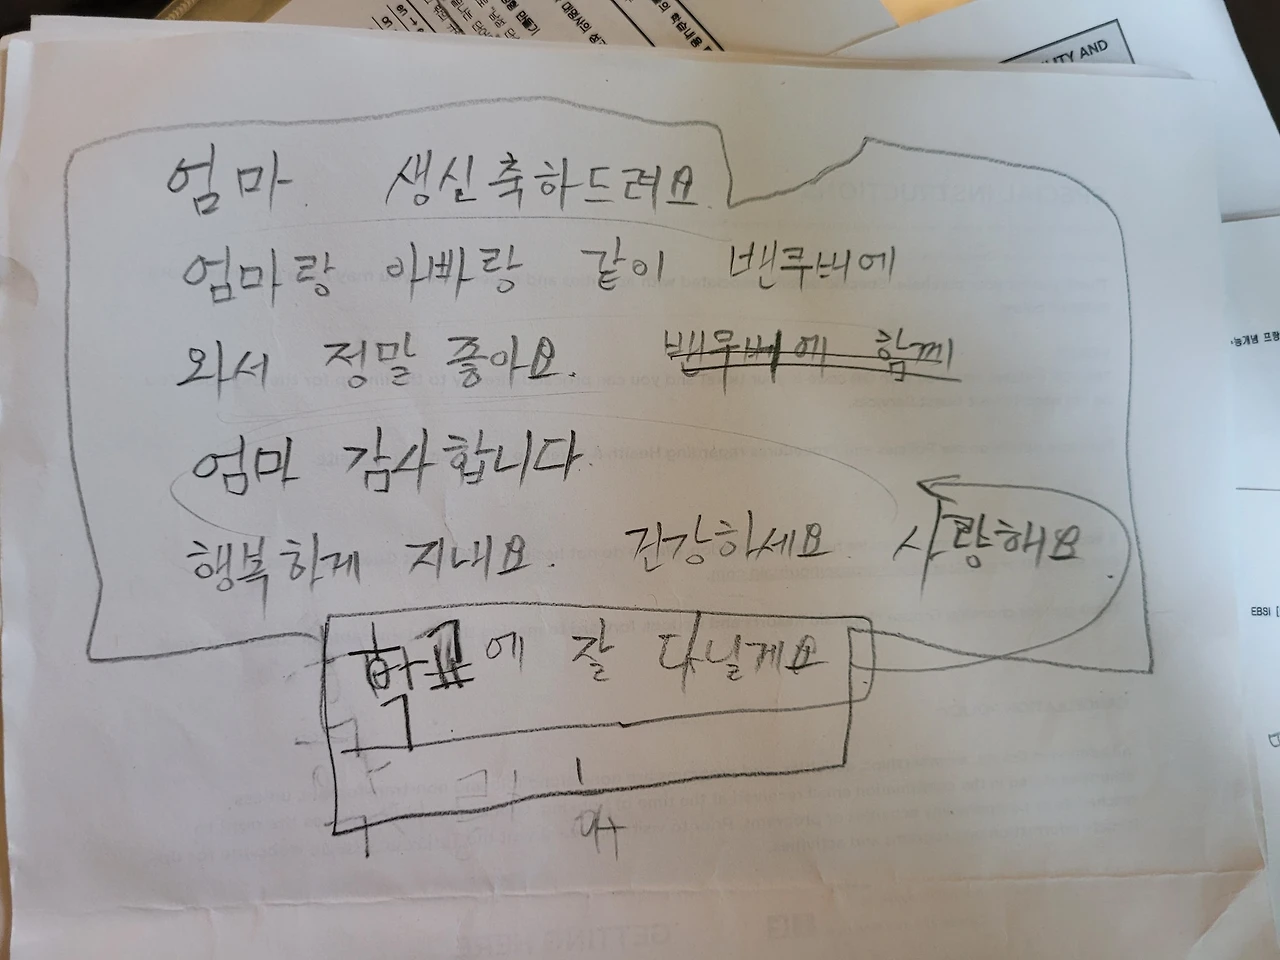 엄마 생신축하드려요
엄마랑 아빠랑 같이 밴쿠버에
와서 정말 좋아요. 밴쿠버에 함께
엄마 감사합니다.
행복하게 지내요. 건강하세요. 사랑해요.
학교에 잘 다닐게요
ILITY AND
EBSI [